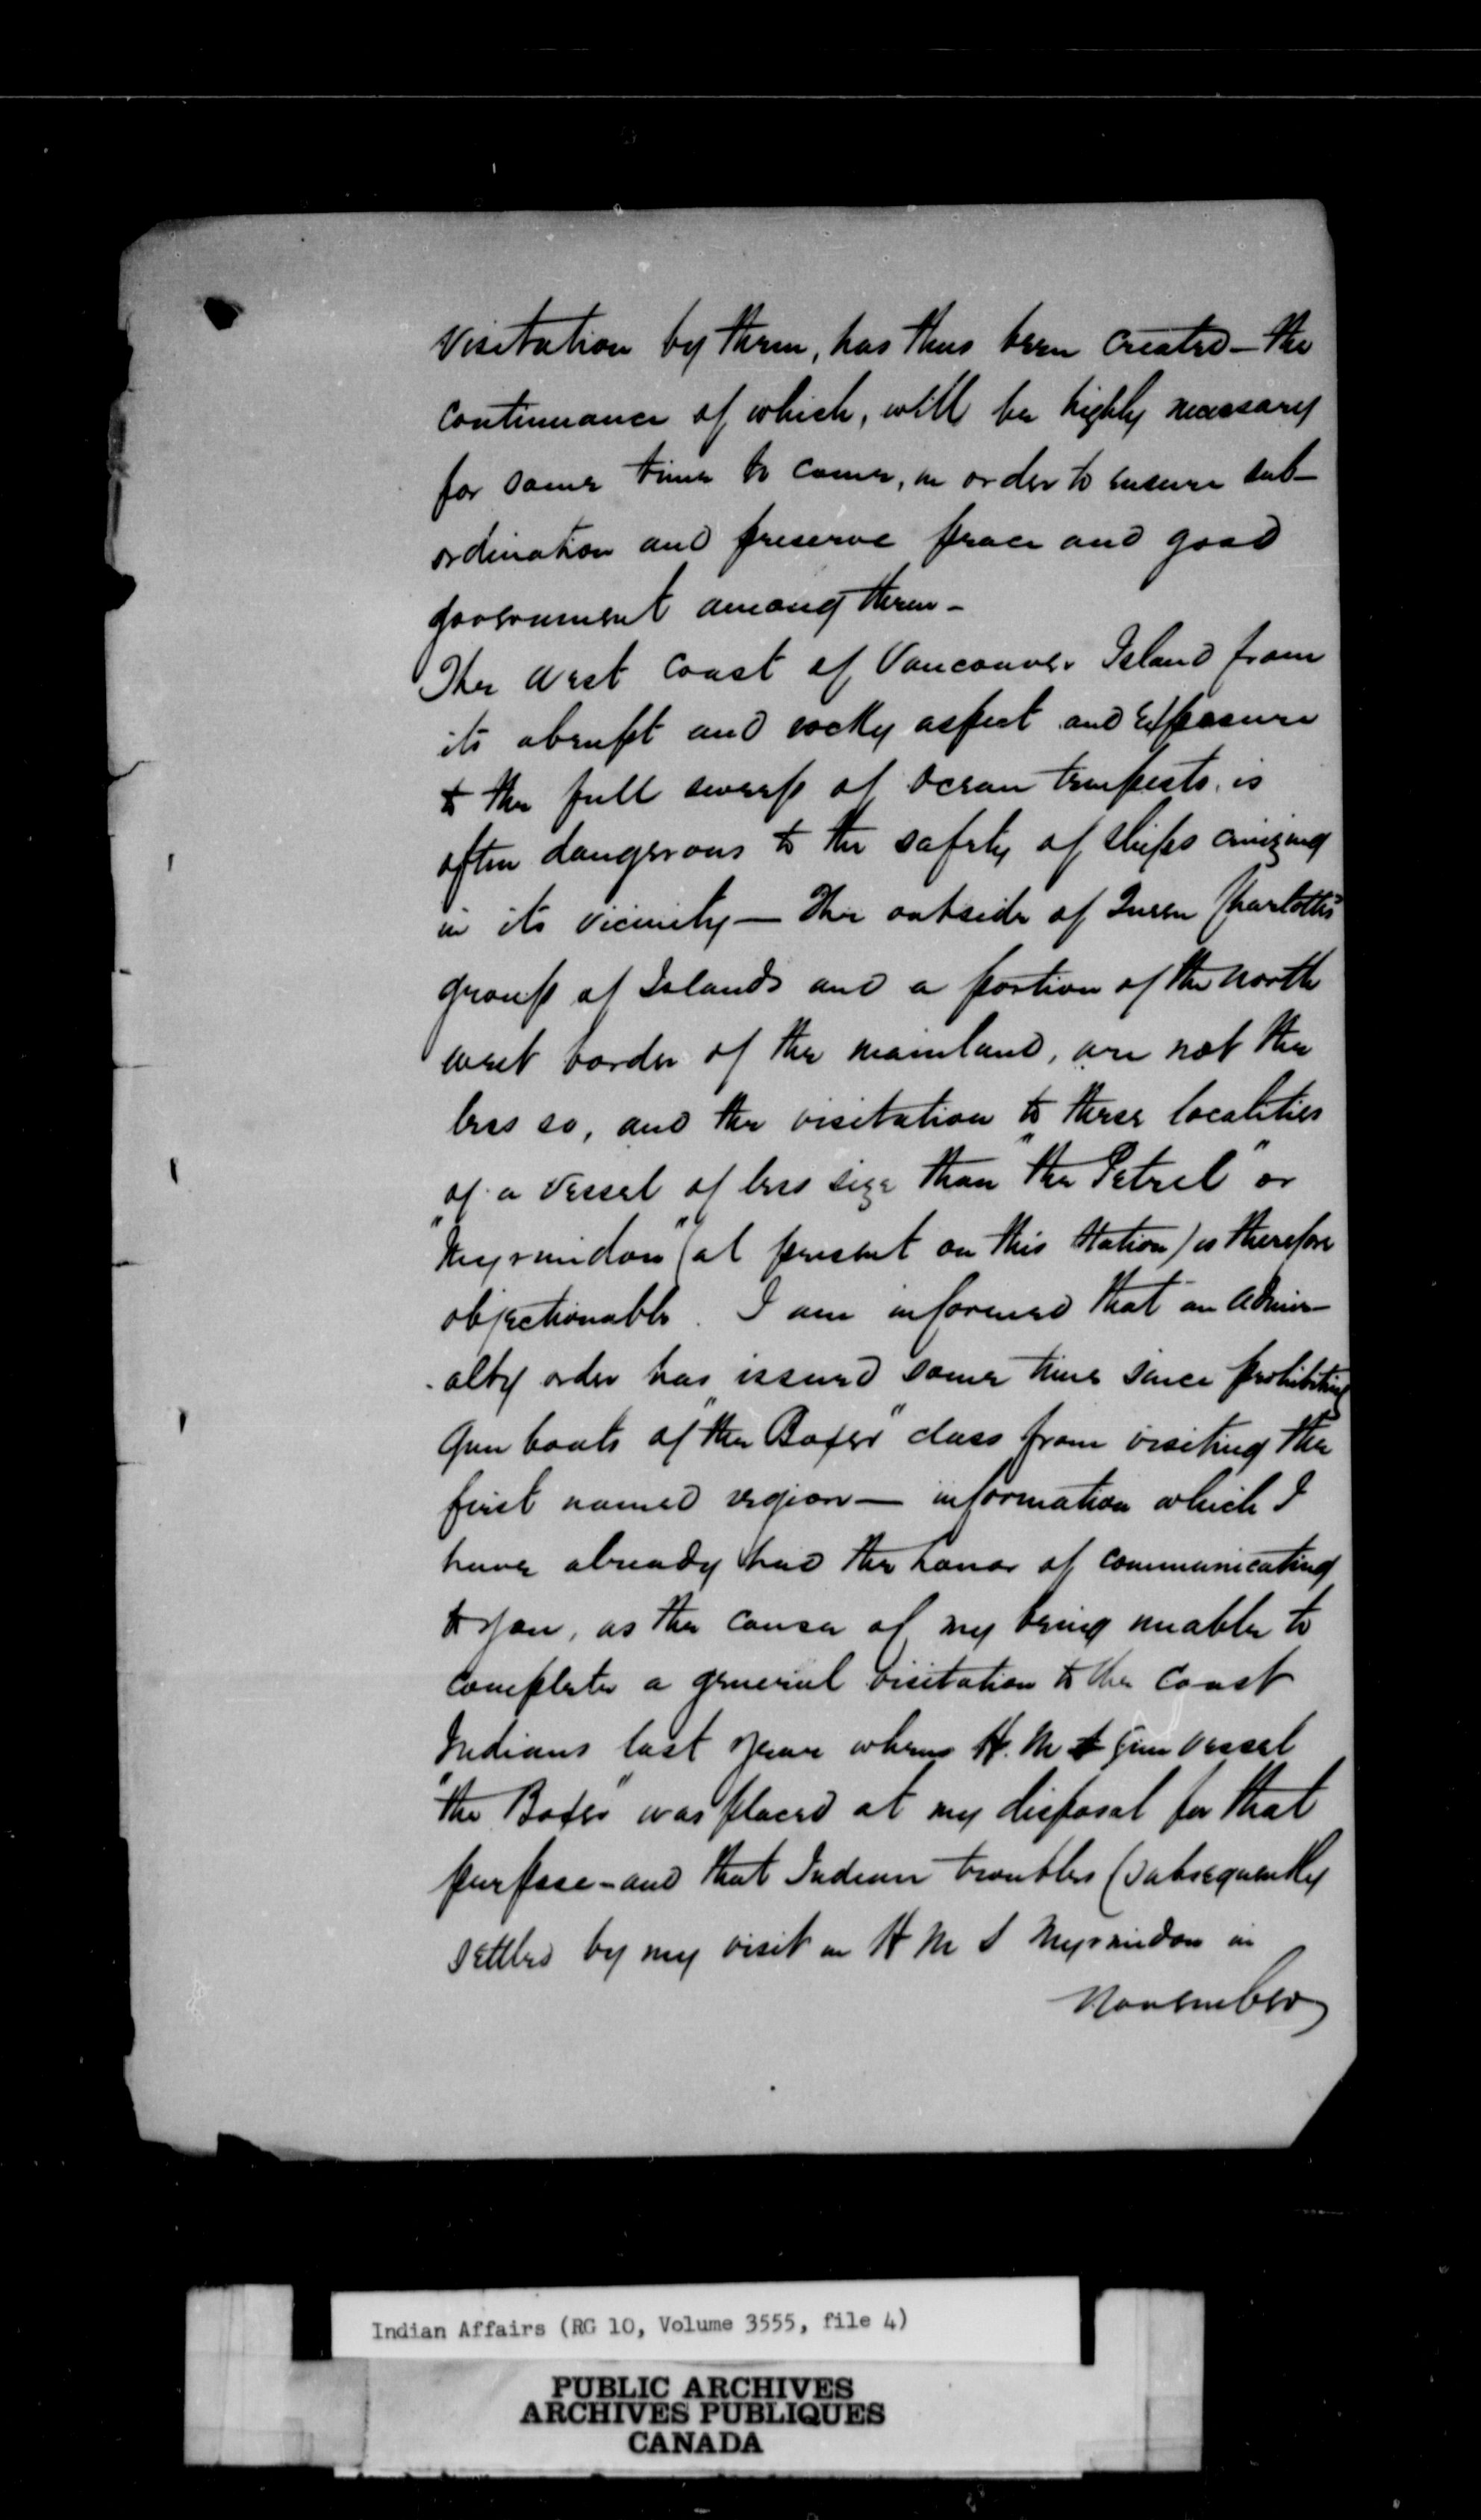 Visitation by them, has thus been created - the
continuance of which, will be highly necessary
for some time to come, in order to ensure sub-
ordination and preserve peace and good
government among them -
The West Coast of Vancouver Island from
its abrupt and rocky aspect and exposure
to the full sweep of ocean tempests, is
often dangerous to the safety of ships cruizing
in its vicinity — The outside of Queen Charlotte's
group of Islands and a portion of the North
west border of the mainland, are not the
less so, and the visitation to these localities
of a vessel of less size than "the Petrel" or
"Myrmidon" (at present on this Station) is therefore
objectionable. I am informed that an Admir-
-alty order has issued some time since prohibiting
Gun boats of "the Boxer" class from visiting the
first named region — information which I
have already had the honor of communicating
to you, as the cause of my being unable to
complete a general visitation to the Coast
Indians last year when H. M. S Gun vessel
"the Boxer" was placed at my disposal for that
purpose - and that Indian troubles (subsequently
settled by my visit in H M S Myrmidon in
November
Indian Affairs (RG 10, Volume 3555, file 4)
PUBLIC ARCHIVES
ARCHIVES PUBLIQUES
CANADA